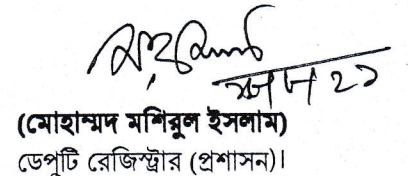 (মোহাম্মদ মশিরুল ইসলাম)
ডেপুটি রেজিস্ট্রার (প্রশাসন)।